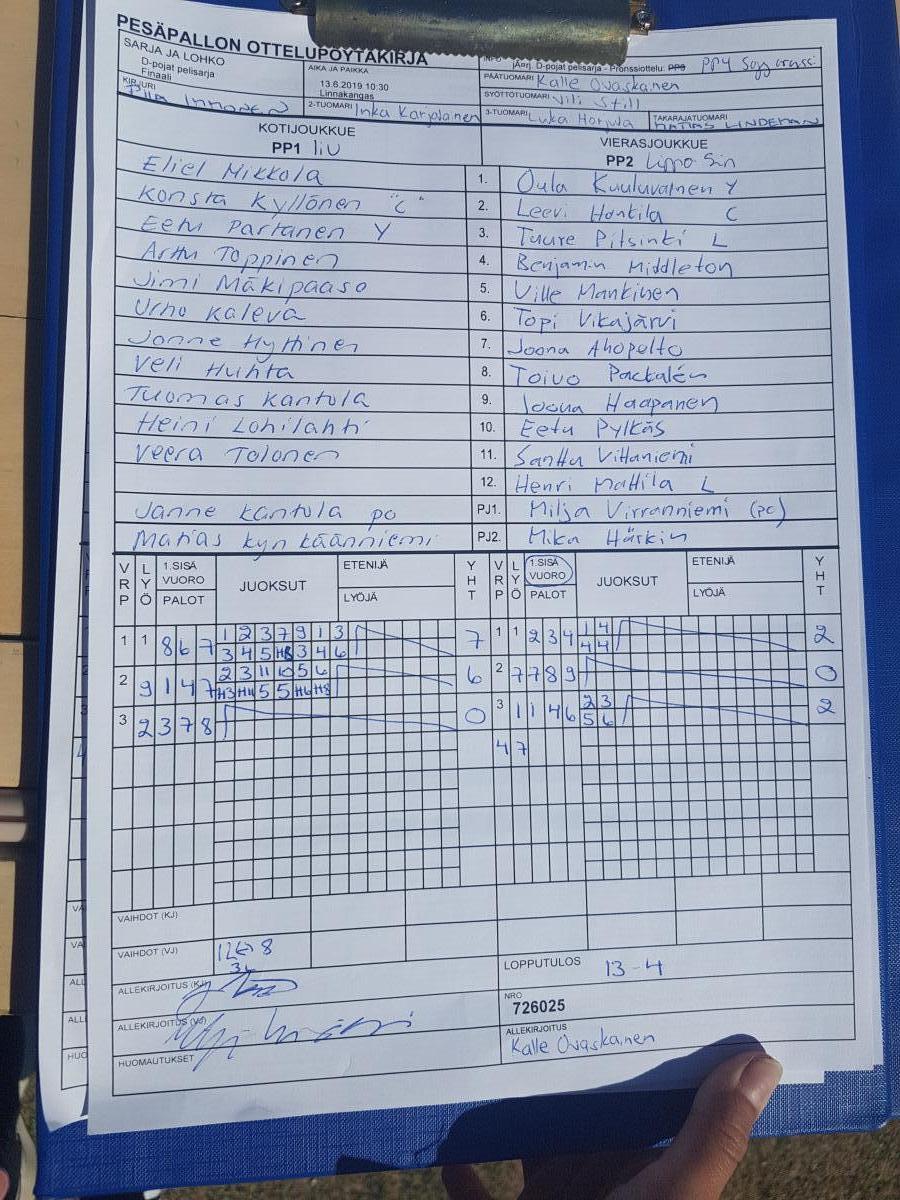 PESÄPALLON OTTELUPÖYTÄKIRJA
SARJA JA LOHKO
D-pojat pelisarja
Finaali
AIKA JA PAIKKA
13.6.2019 10:30
Linnakangas
D-pojat pelisarja - Pronssiottelu: PP3 PP4
PÄÄTUOMARI Kalle Ovaskainen
SYÖTTÖTUOMARI Vili Still
KIRJURI
2-TUOMARI Inka Karjalainen
3-TUOMARI Luka Harjula
TAKARAJATUOMARI MATIAS LINDEMAN
KOTIJOUKKUE
PP1 liU
VIERASJOUKKUE
PP2 Lippo Sin
Eliel Mikkola 1. Oula Kuuluvainen Y
Konsta Kyllönen "C" 2. Leevi Hontila C
Eetu Partanen Y 3. Tuure Pitsinki L
Arttu Toppinen 4. Benjamin Middleton
Jimi Mäkipaaso 5. Ville Mankinen
Urho Kaleva 6. Topi Vikajärvi
Janne Hyttinen 7. Joona Ahopelto
Veli Huhta 8. Toivo Packalén
Tuomas Kantola 9. Joona Haapanen
Heini Lohilahti 10. Eetu Pylkäs
Veera Tolonen 11. Santtu Viitaniemi
12. Henri Mattila L
Janne Kantola pc PJ1. Milja Virranniemi (pc)
Matias Kynkäänniemi PJ2. Mika Härkin
VRP LYÖ 1.SISÄ VUORO PALOT JUOKSUT ETENIJÄ LYÖJÄ YHT VRP LYÖ 1.SISÄ VUORO PALOT JUOKSUT ETENIJÄ LYÖJÄ YHT
1 1 8 6 7 1 2 3 7 9 1 3 7 1 1 2 3 4 1 4 2
3 4 5 H8 3 4 6 4 4
2 9 1 4 7 2 3 11 10 5 6 6 2 7 7 8 9 0
H3 H11 5 5 H6 H8
3 2 3 7 8 0 3 1 1 4 6 2 3 2
5 6
4 7
VAIHDOT (KJ)
VAIHDOT (VJ) 12<->8
3L
LOPPUTULOS 13-4
ALLEKIRJOITUS (KJ)
NRO
726025
ALLEKIRJOITUS (VJ)
ALLEKIRJOITUS
Kalle Ovaskainen
HUOMAUTUKSET